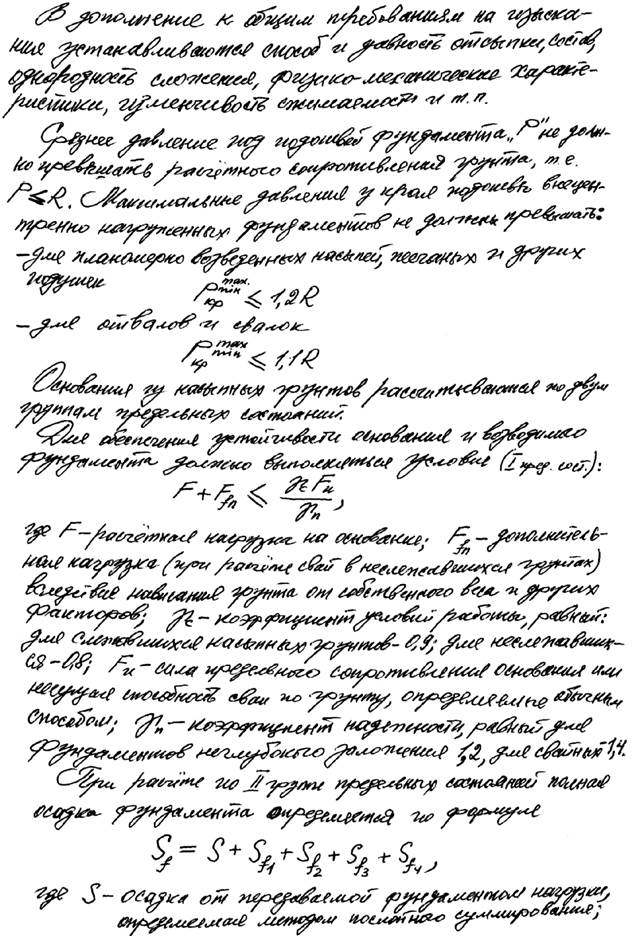 В дополнение к общим требованиям на изыска-
ния устанавливаются способ и давность отсыпки, состав,
однородность сложения, физико-механические характе-
ристики, изменчивость сжимаемости и т.п.
Среднее давление под подошвой фундамента „P" не долж-
но превышать расчётного сопротивления грунта, т.е.
P ≤ R. Максимальные давления у края подошвы внецен-
тренно нагруженных фундаментов не должны превышать:
- для планомерно возведенных насыпей, песчаных и других
подушек
P кр max. min ≤ 1,2R
- для отвалов и свалок
P кр max min ≤ 1,1R
Основания из насыпных грунтов рассчитываются по двум
группам предельных состояний.
Для обеспечения устойчивости основания и возводимого
фундамента должно выполняться условие (I пред. сост.):
F + F_fn ≤ γc Fu / γn,
где F - расчётная нагрузка на основание; F_fn - дополнитель-
ная нагрузка (при расчёте свай в неслежавшихся грунтах)
вследствие нависания грунта от собственного веса и других
факторов; γc - коэффициент условий работы, равный:
для слежавшихся насыпных грунтов - 0,9; для неслежавших-
ся - 0,8; Fu - сила предельного сопротивления основания или
несущая способность сваи по грунту, определяемые обычным
способом; γn - коэффициент надежности, равный для
фундаментов неглубокого заложения 1,2, для свайных 1,4.
При расчёте по II группе предельных состояний полная
осадка фундамента определяется по формуле
S_f = S + S_f1 + S_f2 + S_f3 + S_f4,
где S - осадка от передаваемой фундаментом нагрузки,
определяемая методом послойного суммирования;